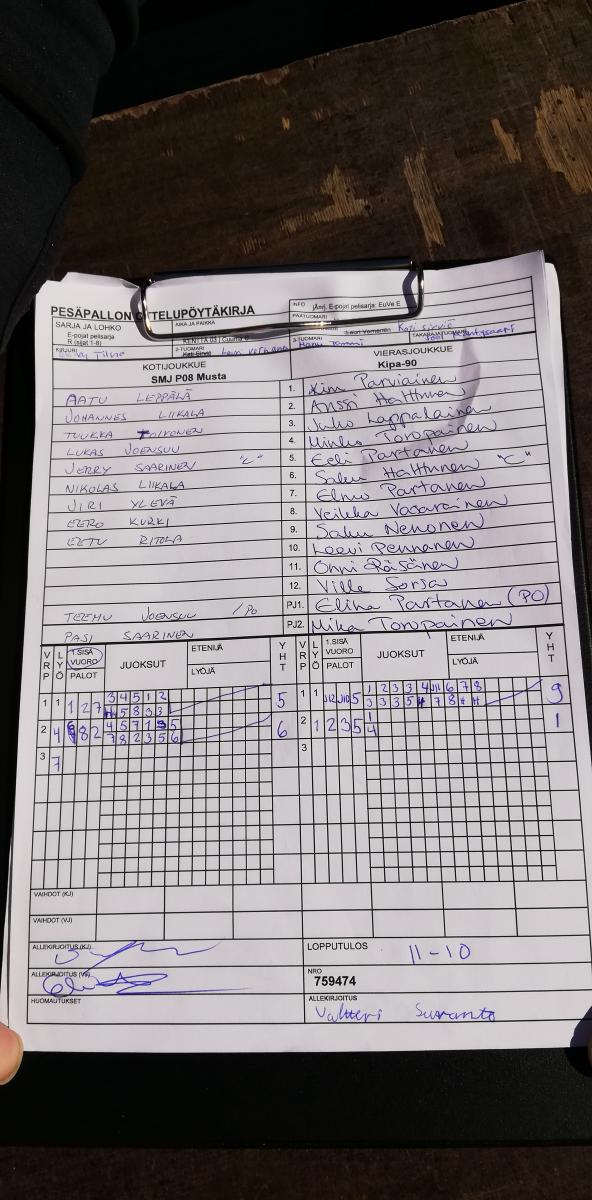 PESÄPALLON OTTELUPÖYTÄKIRJA
INFO jÄrrj. E-pojat pelisarja: EuVe E
SARJA JA LOHKO AIKA JA PAIKKA PÄÄTUOMARI
E-pojat pelisarja
R (sijat 1-8)
KIRJURI 2-TUOMARI 3-TUOMARI TAKARAJATUOMARI
KOTIJOUKKUE VIERASJOUKKUE
SMJ P08 Musta Kipa-90
AATU LEPPÄLÄ 1. Kim Parviainen
JOHANNES LIIKALA 2. Anssi Halttunen
TUUKKA TOIVONEN 3. Juho Lappalainen
LUKAS JOENSUU 4. Minko Toropainen
JERRY SAARINEN "C" 5. Eeli Partanen
NIKOLAS LIIKALA 6. Saku Halttunen "C"
JIRI YLEVÄ 7. Elmo Partanen
EERO KURKI 8. Veikka Vasarainen
EETU RITOLA 9. Saku Nenonen
10. Leevi Pennanen
11. Onni Räsänen
12. Ville Sorsa
TEEMU JOENSUU /PO PJ1. Elina Partanen (PO)
PASI SAARINEN PJ2. Mika Toropainen
VRP LYÖ 1.SISÄ VUORO PALOT JUOKSUT ETENIJÄ LYÖJÄ YHT VRP LYÖ 1.SISÄ VUORO PALOT JUOKSUT ETENIJÄ LYÖJÄ YHT
1 1 1 2 7 3 4 5 1 2 5 1 1 J12 J10 5 1 2 3 3 4 J11 6 7 8 9
5 8 3 3 3 3 3 5 7 8
2 4 8 2 4 5 7 1 5 6 2 1 2 3 5 1 1
7 8 2 3 5 6 4
3 7 3
VAIHDOT (KJ)
VAIHDOT (VJ)
ALLEKIRJOITUS (KJ) LOPPUTULOS 11-10
ALLEKIRJOITUS (VJ) NRO
759474
HUOMAUTUKSET ALLEKIRJOITUS
Valtteri Suranto